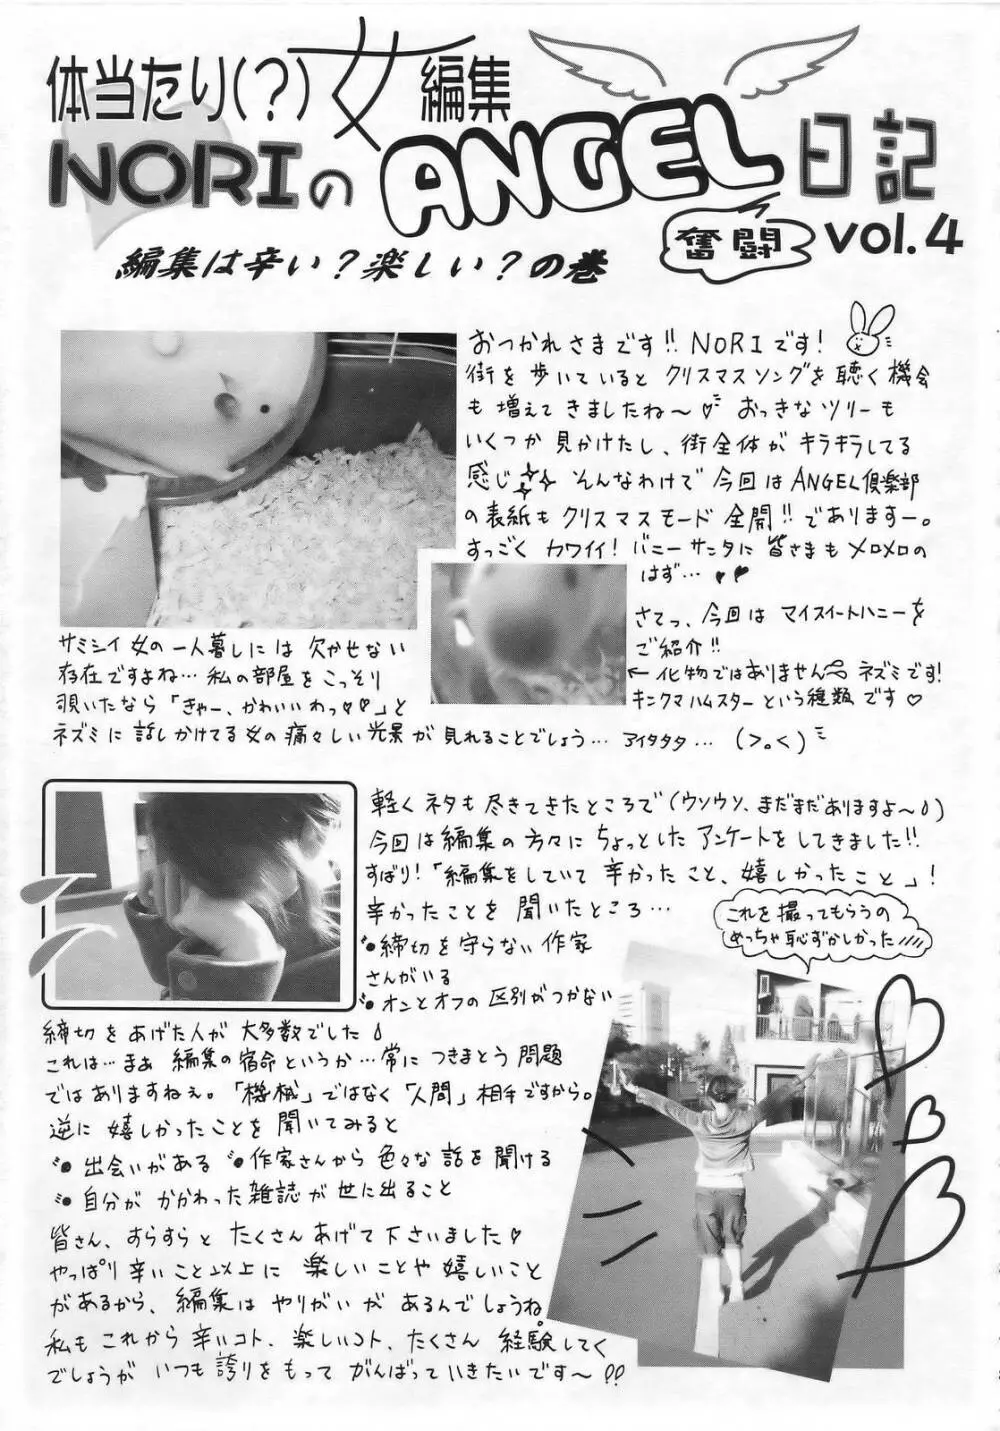 体当たり(?)女編集
NORIのANGEL日記
奮闘
vol.4
編集は辛い?楽しい?の巻
おつかれさまです!! NORIです!
街を歩いているとクリスマスソングを聴く機会
も増えてきましたね〜♡ おっきなツリーも
いくつか見かけたし、街全体がキラキラしてる
感じ そんなわけで今回はANGEL倶楽部
の表紙もクリスマスモード全開!! でありますー。
すっごくカワイイ! バニーサンタに皆さまもメロメロの
はず…♥♥
さてっ、今回はマイスイートハニーを
ご紹介!!
←化物ではありません ネズミです!
キンクマハムスターという種類です♡
サミシイ女の一人暮しには欠かせない
存在ですよね…私の部屋をこっそり
覗いたなら「きゃー、かわいいわっ♡♡」と
ネズミに話しかけてる女の痛々しい光景が見れることでしょう…アイタタタ…(>。<)
軽くネタも尽きてきたところで(ウソウソ、まだまだありますよ〜)
今回は編集の方々にちょっとしたアンケートをしてきました!!
ずばり!「編集をしていて辛かったこと、嬉しかったこと」!
辛かったことを聞いたところ…
●締切を守らない作家
さんがいる
●オンとオフの区別がつかない
これを撮ってもらうの
めっちゃ恥ずかしかった////
締切をあげた人が大多数でした
これは…まぁ編集の宿命というか…常につきまとう問題
ではありますねぇ。「機械」ではなく「人間」相手ですから。
逆に嬉しかったことを聞いてみると
●出会いがある ●作家さんから色々な話を聞ける
●自分がかかわった雑誌が世に出ること
皆さん、すらすらとたくさんあげて下さいました♡
やっぱり辛いこと以上に楽しいことや嬉しいこと
があるから、編集はやりがいがあるんでしょうね。
私もこれから辛いコト、楽しいコト、たくさん経験してく
でしょうがいつも誇りをもってがんばっていきたいです〜!!